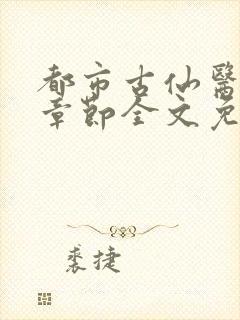 都市古仙醫
章節全文免
裘捷